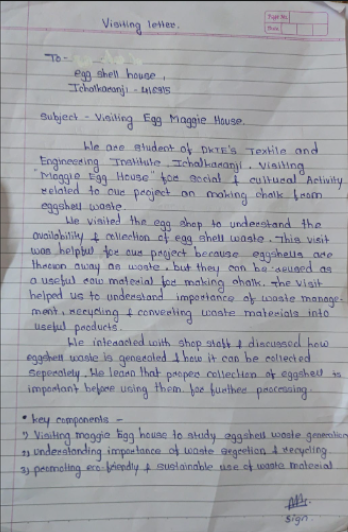 Visiting letter.
To -
egg shell house,
Ichalkaranji - 416115
Subject - Visiting Egg Maggie House.
We are student of DKTE's Textile and
Engineering Institute, Ichalkaranji. Visiting
"Maggie Egg House" for social & cultural Activity
related to our project on making chalk from
eggshell waste.
We visited the egg shop to understand the
availability & collection of egg shell waste. This visit
was helpful for our project because eggshells are
thrown away as waste, but they can be reused as
a useful raw material for making chalk. The visit
helped us to understand importance of waste manage-
ment, recycling & converting waste materials into
useful products.
We interacted with shop staff & discussed how
eggshell waste is generated & how it can be collected
seperately. We learn that proper collection of eggshell is
important before using them for further processing.
* key components -
1) Visiting maggie Egg house to study eggshell waste generation
2) understanding importance of waste segration & recycling
3) promoting eco-friendly & sustainable use of waste material
Sign.